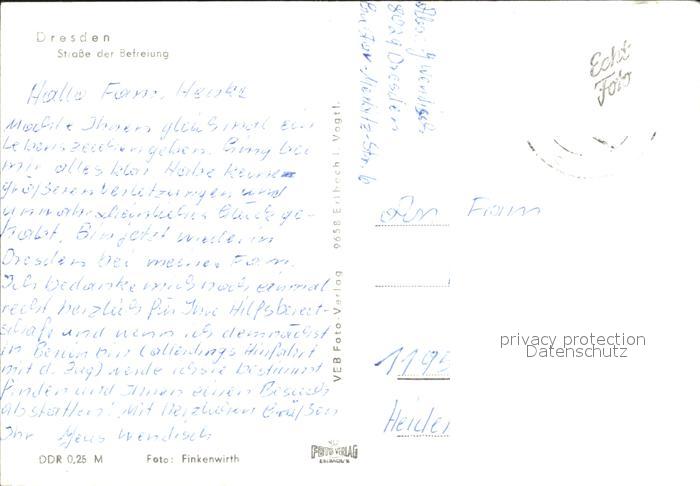 Dresden
Straße der Befreiung
Hallo Fam. Henke
Möchte Ihnen gleich mal ein
Lebenszeichen geben. Ging bei
mir alles klar Habe keine
größeren Verletzungen und
unwahrscheinliches Glück ge-
habt. Bin jetzt wieder in
Dresden bei meiner Fam.
Ich bedanke mich noch einmal
recht herzlich für Ihre Hilfsbereit-
schaft und wenn ich demnächst
in Berlin bin (allerdings Hinfahrt
mit d. Zug) werde ich sie bestimmt
finden und Ihnen einen Besuch
abstatten! Mit herzlichen Grüßen
Ihr Jens Wendisch
DDR 0,25 M Foto: Finkenwirth
VEB Foto Verlag 9658 Erlbach i. Vogtl.
Abs. J. Wendisch
8029 Dresden
FOTO VERLAG
ERLBACH/V.
Echt
Foto
An Fam
1195
Heider
privacy protection
Datenschutz